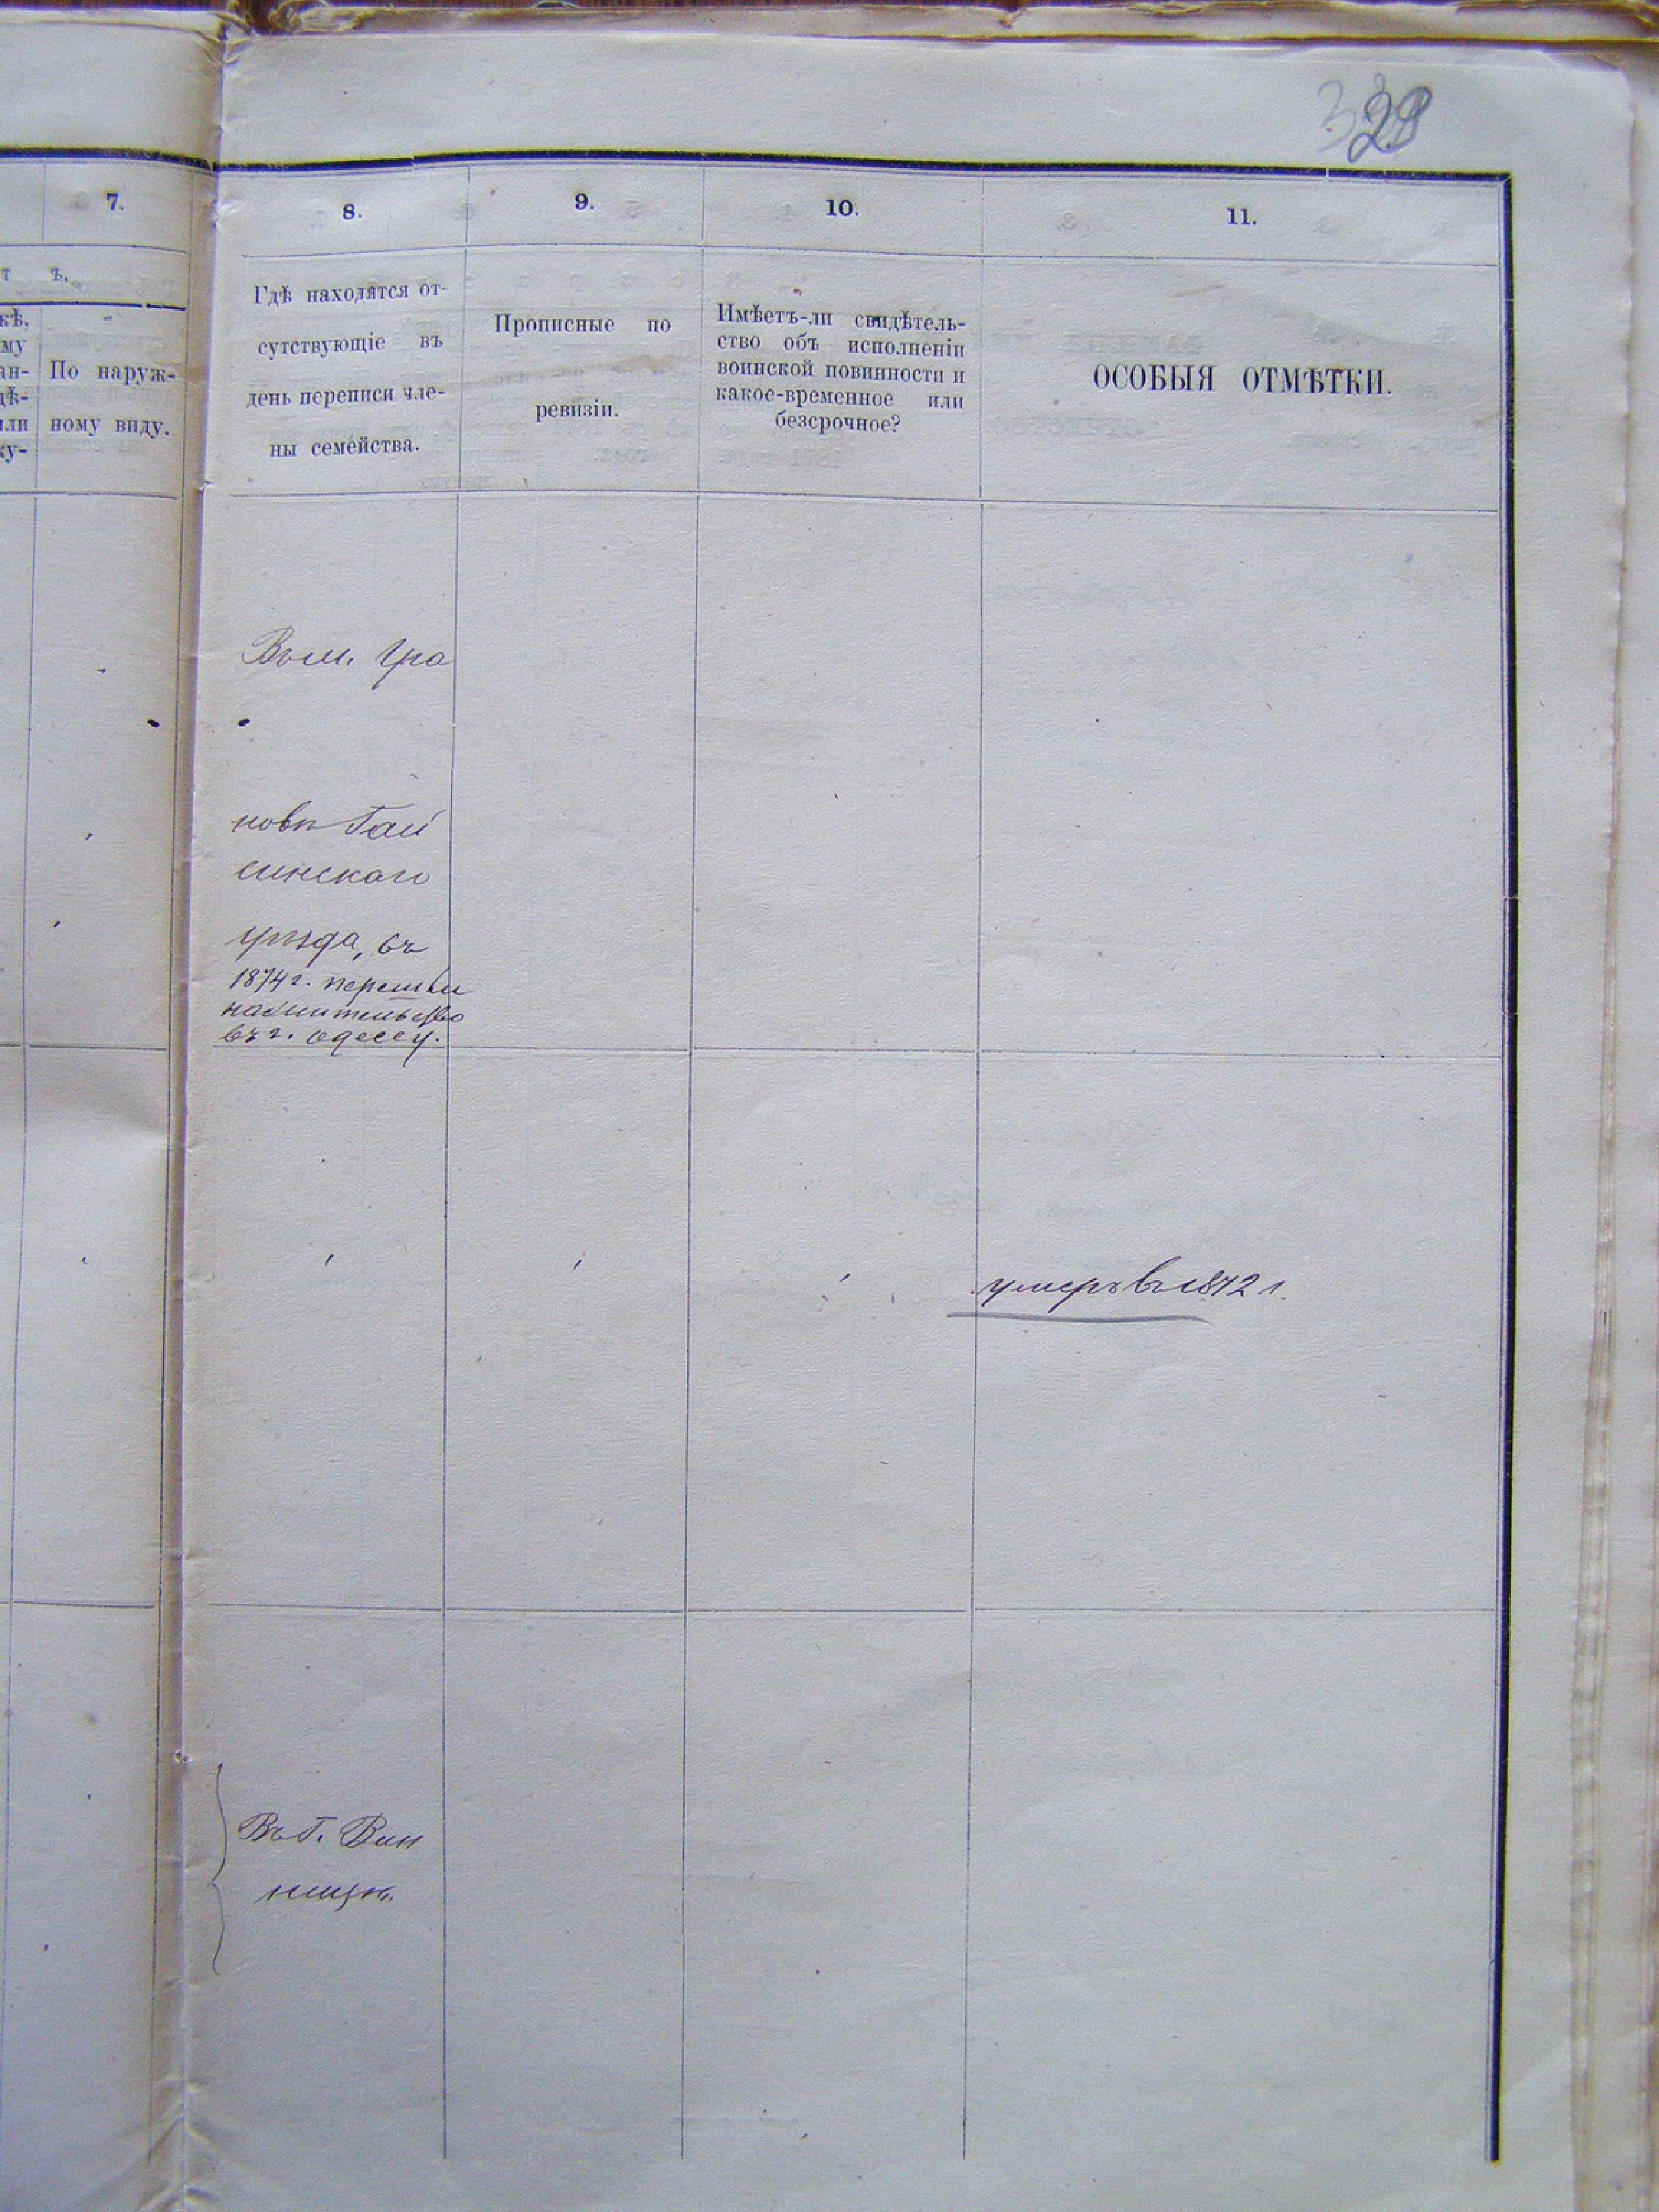 29
7.
8.
9.
10.
11.
т ъ.
кѣ,
му
ан-
дѣ-
или
ку-
По наруж-
ному виду.
Гдѣ находятся от-
сутствующіе въ
день переписи чле-
ны семейства.
Прописные по
ревизіи.
Имѣетъ-ли свидѣтель-
ство объ исполненіи
воинской повинности и
какое-временное или
безсрочное?
ОСОБЫЯ ОТМѢТКИ.
Въ м. Гра
новѣ Гай
синскаго
уѣзда, въ
1874 г. перешли
на жительство
въ г. Одессу.
умеръ въ 1872 г.
Въ г. Вин
ницѣ.